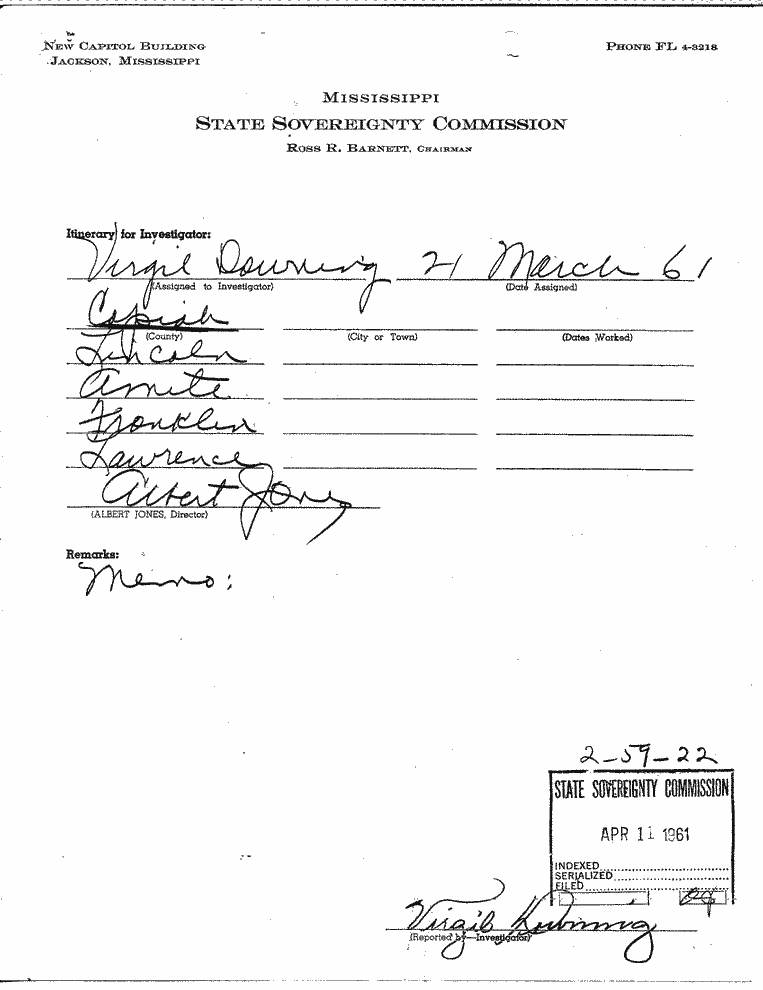 NEW CAPITOL BUILDING
JACKSON, MISSISSIPPI
PHONE FL 4-3218
MISSISSIPPI
STATE SOVEREIGNTY COMMISSION
ROSS R. BARNETT, CHAIRMAN
Itinerary for Investigator:
Virgil Downing 21 March 61
(Assigned to Investigator) (Date Assigned)
Copiah
(County) (City or Town) (Dates Worked)
Lincoln
Amite
Franklin
Lawrence
Albert Jones
(ALBERT JONES, Director)
Remarks:
Memo:
2-59-22
STATE SOVEREIGNTY COMMISSION
APR 11 1961
INDEXED
SERIALIZED
FILED
Virgil Downing
(Reported by—Investigator)